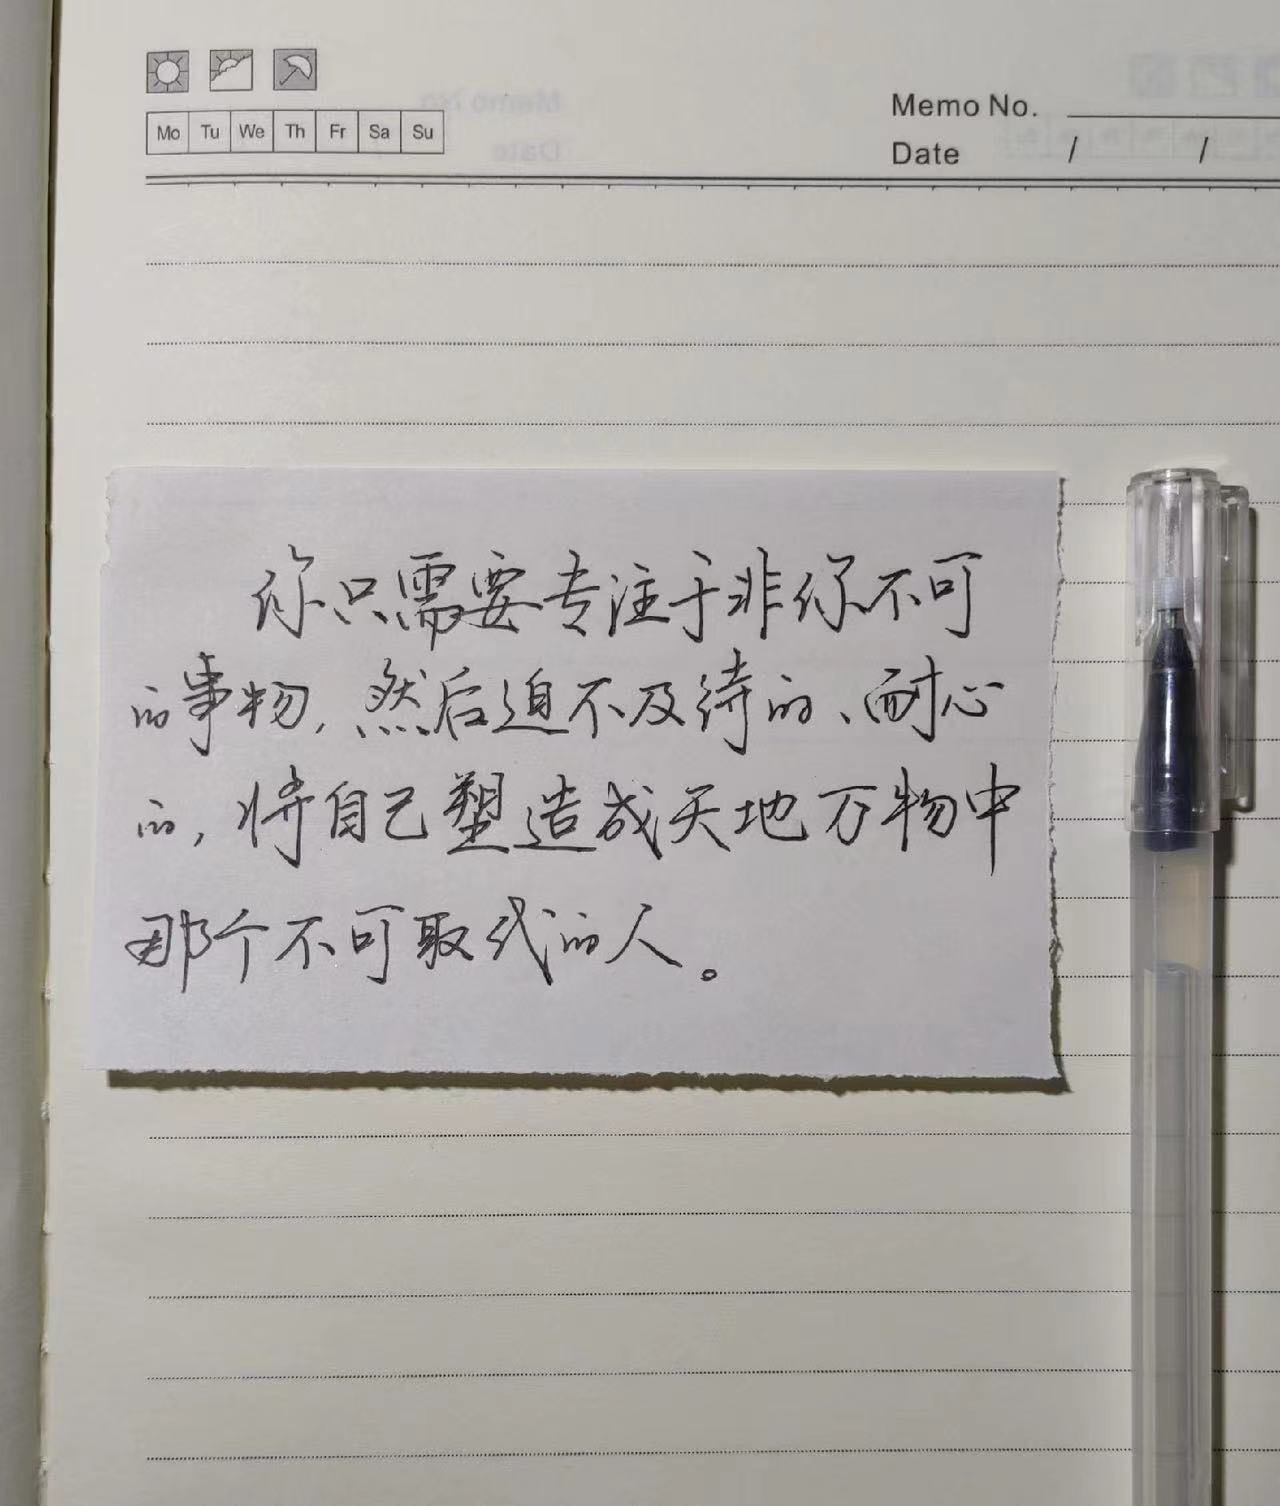 Mo Tu We Th Fr Sa Su
Memo No.
Date / /
你只需要专注于非你不可
的事物，然后迫不及待的、耐心
的，将自己塑造成天地万物中
那个不可取代的人。